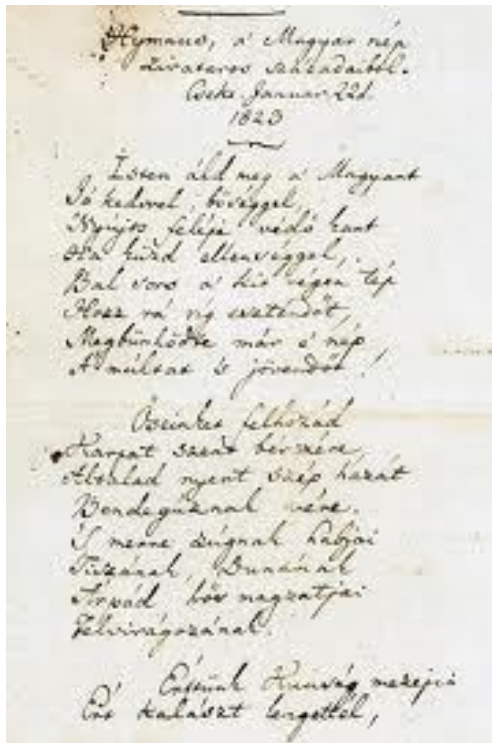 Hymnus, a' Magyar nép
zivataros századaiból.
Cseke Januar. 22d.
1823
Isten áld meg a' Magyart
Jó kedvvel, bőséggel,
Nyújts feléje védő kart
Ha küzd ellenséggel,
Bal sors a' kit régen tép
Hozz rá víg esztendőt,
Megbűnhődte már e' nép
A' múltat 's jövendőt!
Őseinket felhozád
Kárpát szent bérczére,
Általad nyert szép hazát
Bendegúznak vére.
'S merre zúgnak habjai
Tiszának, Dunának
Árpád hős magzatjai
Felvirágozának.
Értünk Kunság mezején
Ért kalászt lengettél,